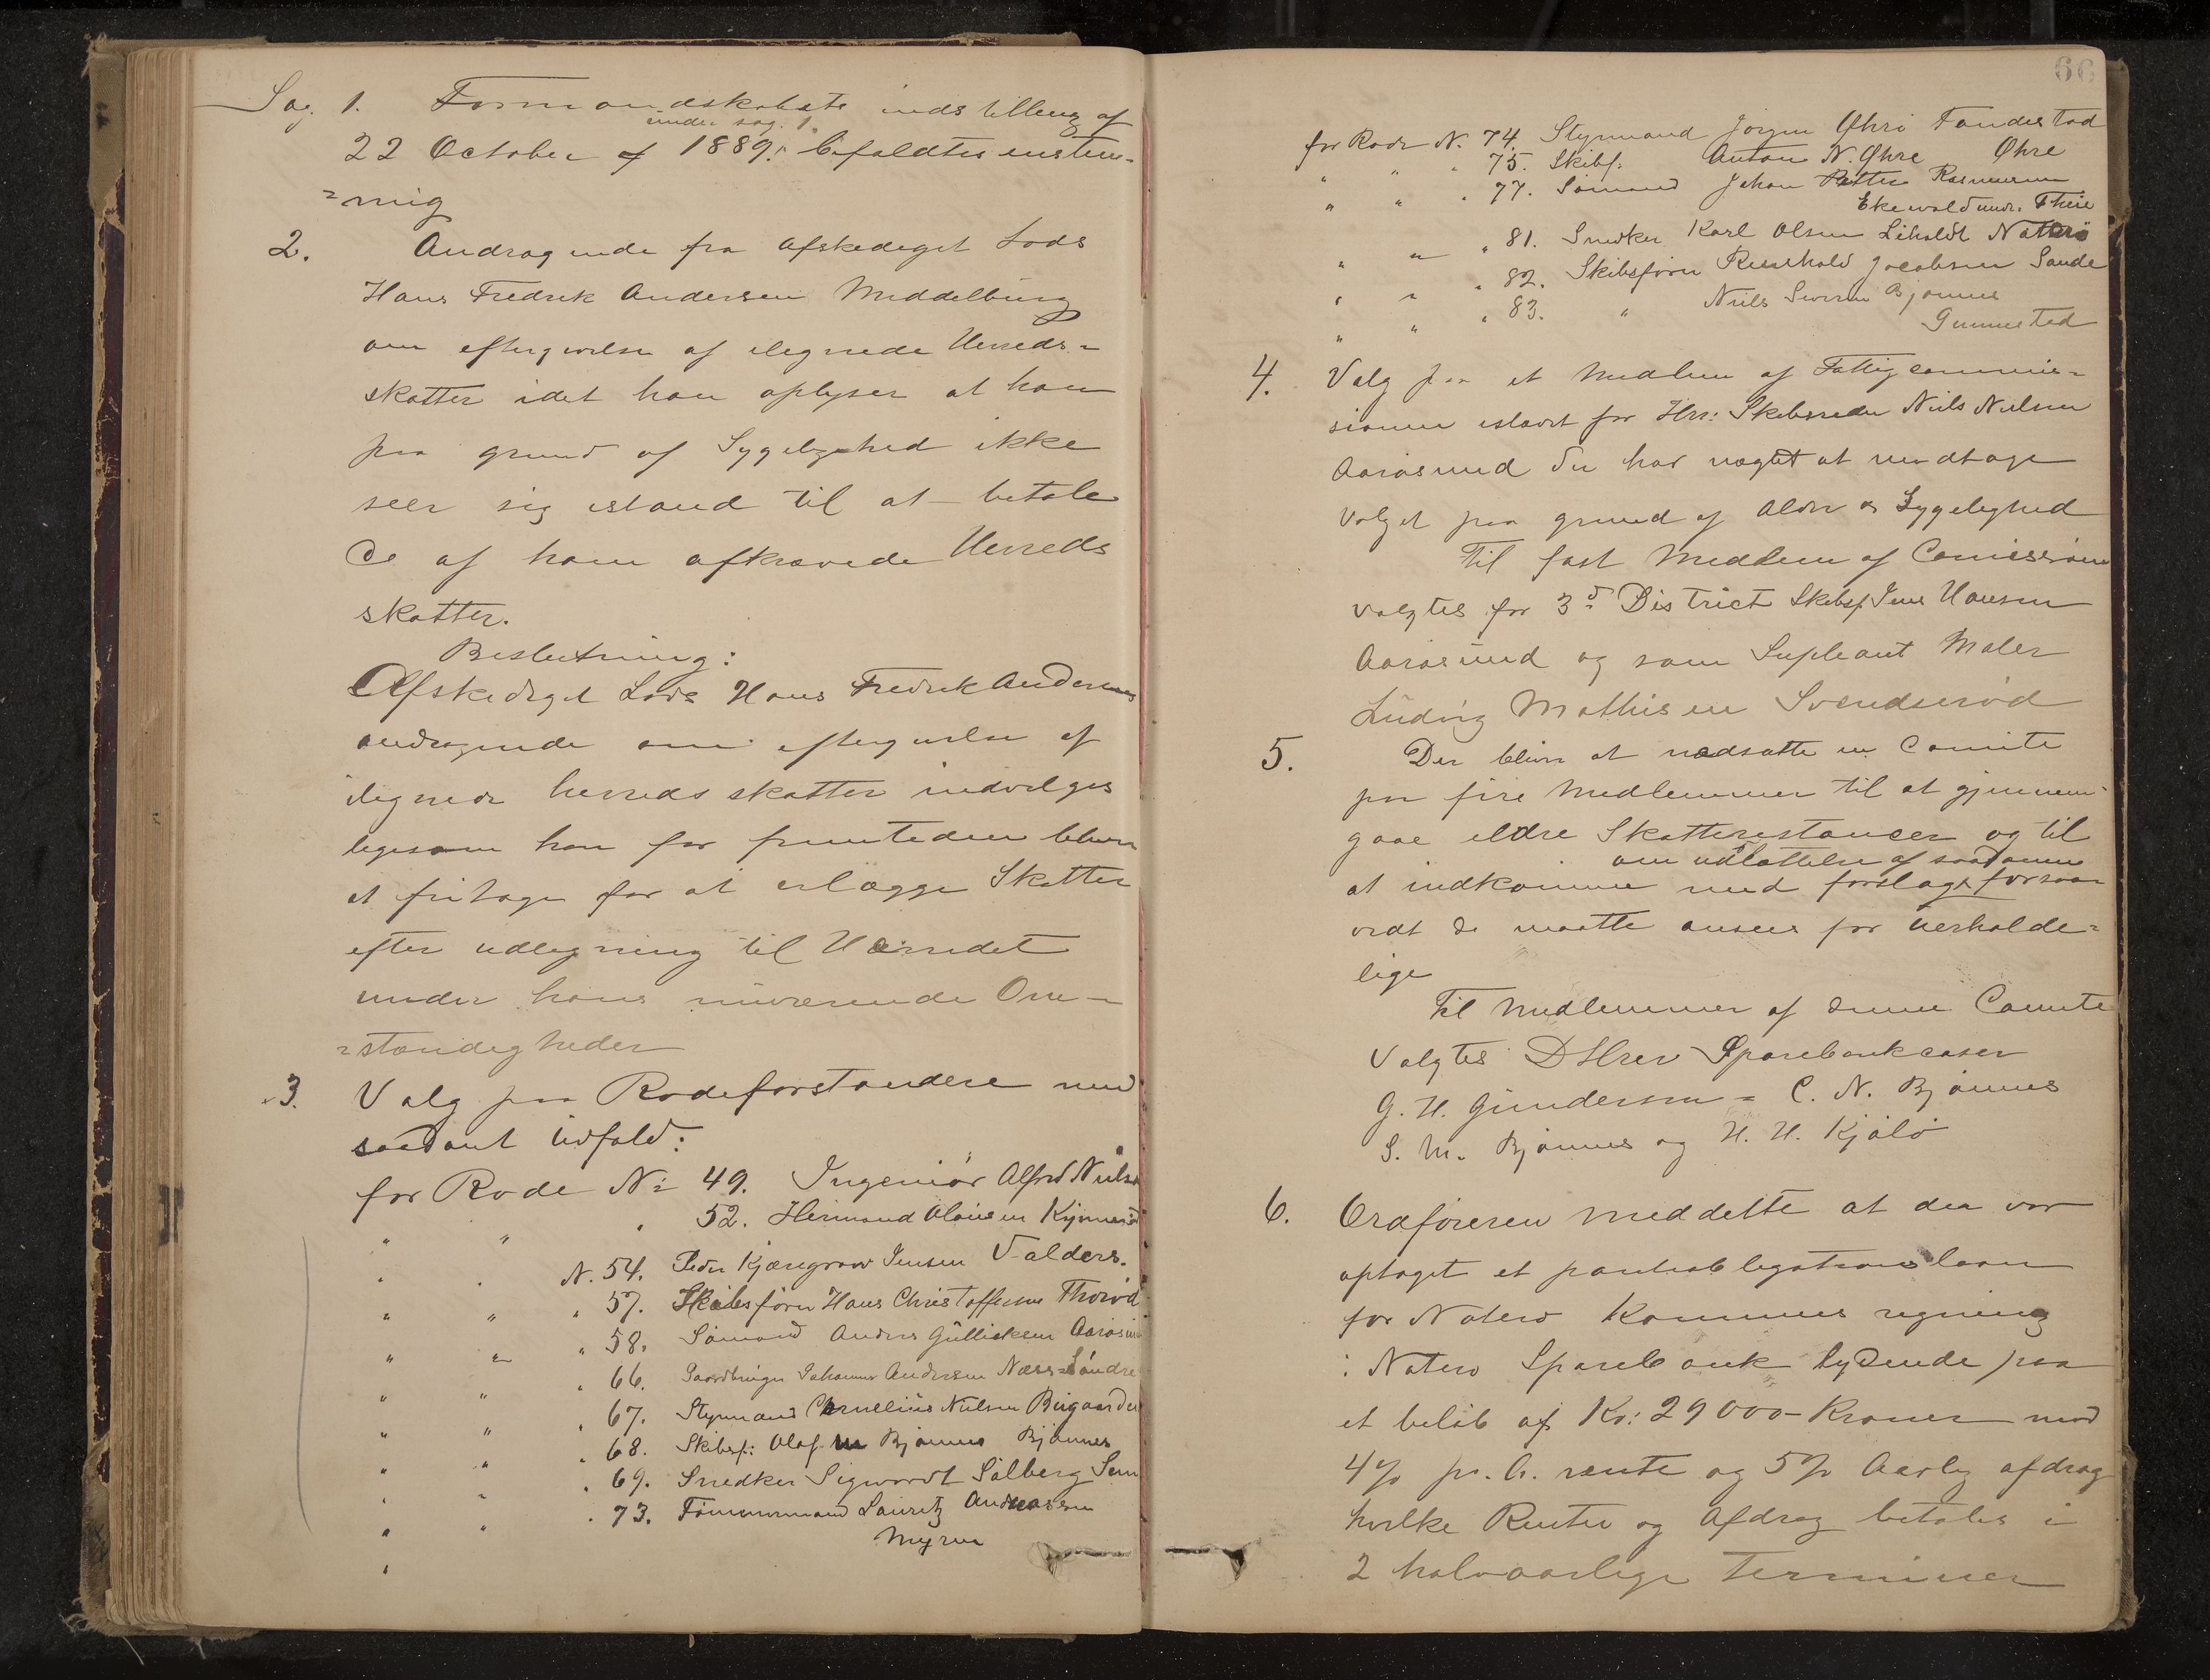 Sag. 1. Formandskabets indstilling af
under sag. 1.
22 October af 1889. bifaldtes enstem-
=mig
2. Andragende fra afskediget Lods
Hans Fredrik Andersen Middelburg
om eftergivelse af ilegnede Herreds-
skatter idet han oplyser at han
paa grund af Sygelighed ikke
seer sig istand til at betale
de af ham afkrævede Herreds
skatter.
Beslutning:
Afskediget Lods Hans Fredrik Andersens
andragende om eftergivelse af
ilignede herredsskatter indvilges
ligesom han for fremtiden bliver
at fritage for at erlægge Skatter
efter udlegning til Herredet
under hans nuværende Om-
=stændigheder
3. Valg paa Rodeforstandere med
saadant Udfald:
for Rode No 49. Ingeniør Alfred Nielsen
" " " 52. Hermand Olausen Kjynnerød
" " N. 54. Peder Kjærgrav Jensen Valders.
" " " 57. Skibsfører Hans Christoffersen Thorød
" " " 58. Sømand Anders Gulliksen Aarøsund
" " " 66. Johannes Andersen Næss-Søndre
" " " 67. Styrmand Cornelius Nielsen Bugaarden
" " " 68. Skibsf: Olaf M Bjønnes Bjønnes
" " " 69. Snedker Sigvardt Solberg Sem
" " " 73. Tømmermand Lauritz Andreassen
Myren
66
for Rode N. 74. Styrmand Jørgen Øhre Fandestad
" " " 75. Skibsf: Anton N. Øhre Øhre
" " " 77. Sømand Johan Petter Rasmussen
Ekevold undr. Theie
" " " 81. Snedker Karl Olsen Liholdt Nøtterø
" " " 82. Skibsfører Reinhold Jacobsen Sande
" " " 83. " Niels Severin Bjønnes
Gunnestad
4. Valg paa et Medlem af Fattigcommis-
sionen istedet for Hrr: Skibsreder Niels Nielsen
Aarøsund der har nægtet at modtage
Valget paa grund af Alder og Sygelighed
Til fast Medlem af Comissionen
valgtes for 3d District Skibsf. Jens Hansen
Aarøsund og som Supleant Maler
Ludvig Mathisen Svendserød
5. Der bliver at nedsætte en Comite
paa fire Medlemmer til at gjennem-
gaae eldre Skatterestancer og til
om udslettelse af saadanne
at indkomme med forslag forsaa-
vidt de maatte ansees for uerholde-
lige
Til Medlemmer af denne Comite
Valgtes DHrer Sparebankcaser
G. H. Gundersen = C. N. Bjønnes
S. M. Bjønnes og H. H. Kjølø
6. Ordføreren meddelte at der var
optaget et pantobligationslaan
for Nøterø Kommunes regning
i Nøterø Sparebank lydende paa
et beløb af Kr: 29000 - Kroner mod
4% pr. A. rente og 5% Aarlig afdrag
hvilke Renter og Afdrag betales i
2 halvaarlige Terminer